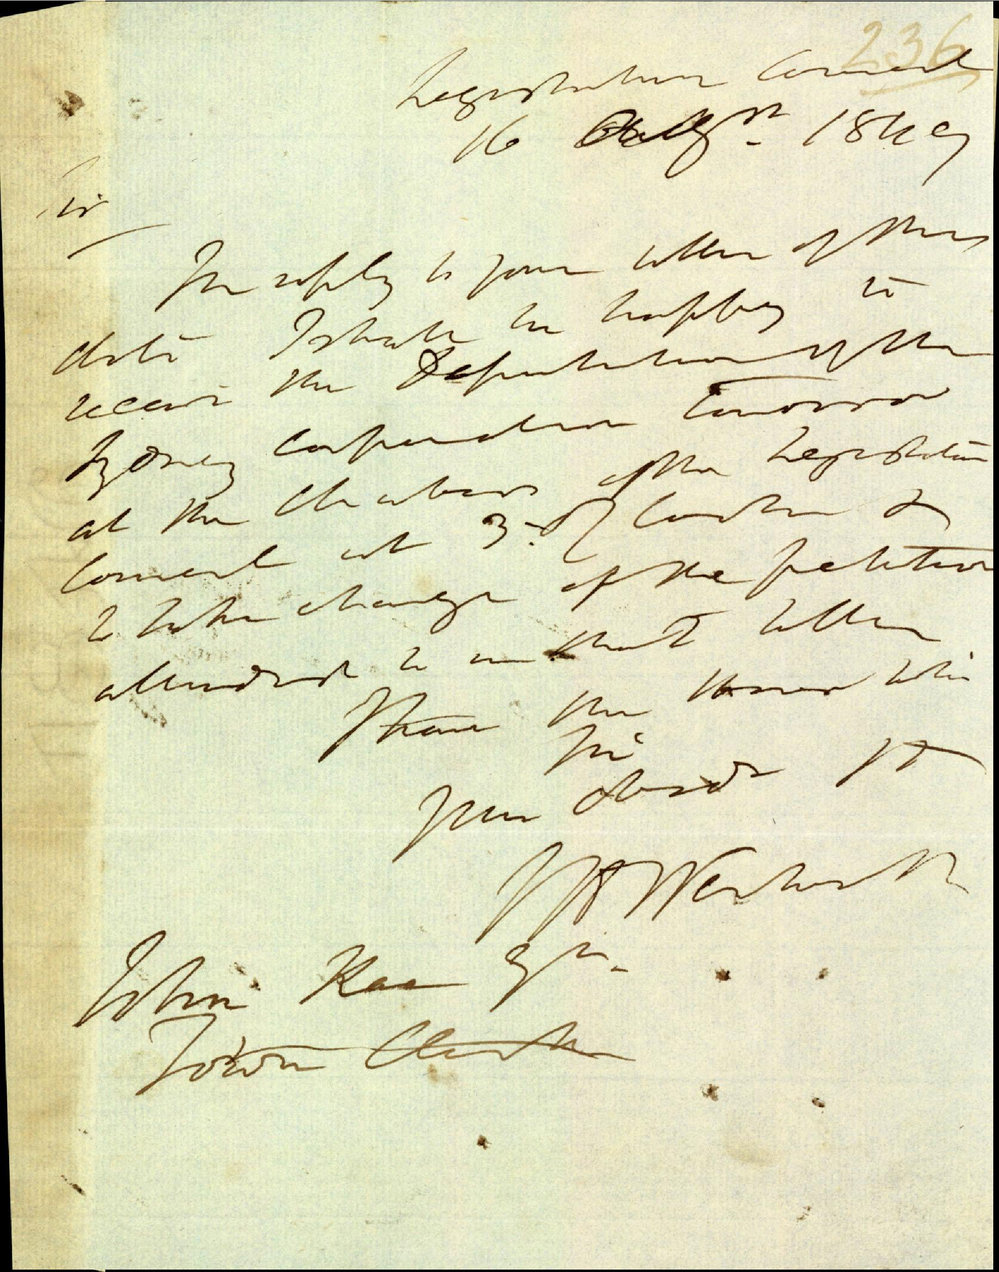 236
Legislative Council
16 Augst. 1849
Sir
In reply to your letter of this
date I shall be happy to
receive the Deputation of the
Sydney Corporation tomorrow
at the Chambers of the Legislative
Council at 3 O'Clock &
to take charge of the petition
alluded to in that letter
I have the honor to be
Sir
your obedt St
W C Wentworth
John Rae Esqr.
Town Clerk